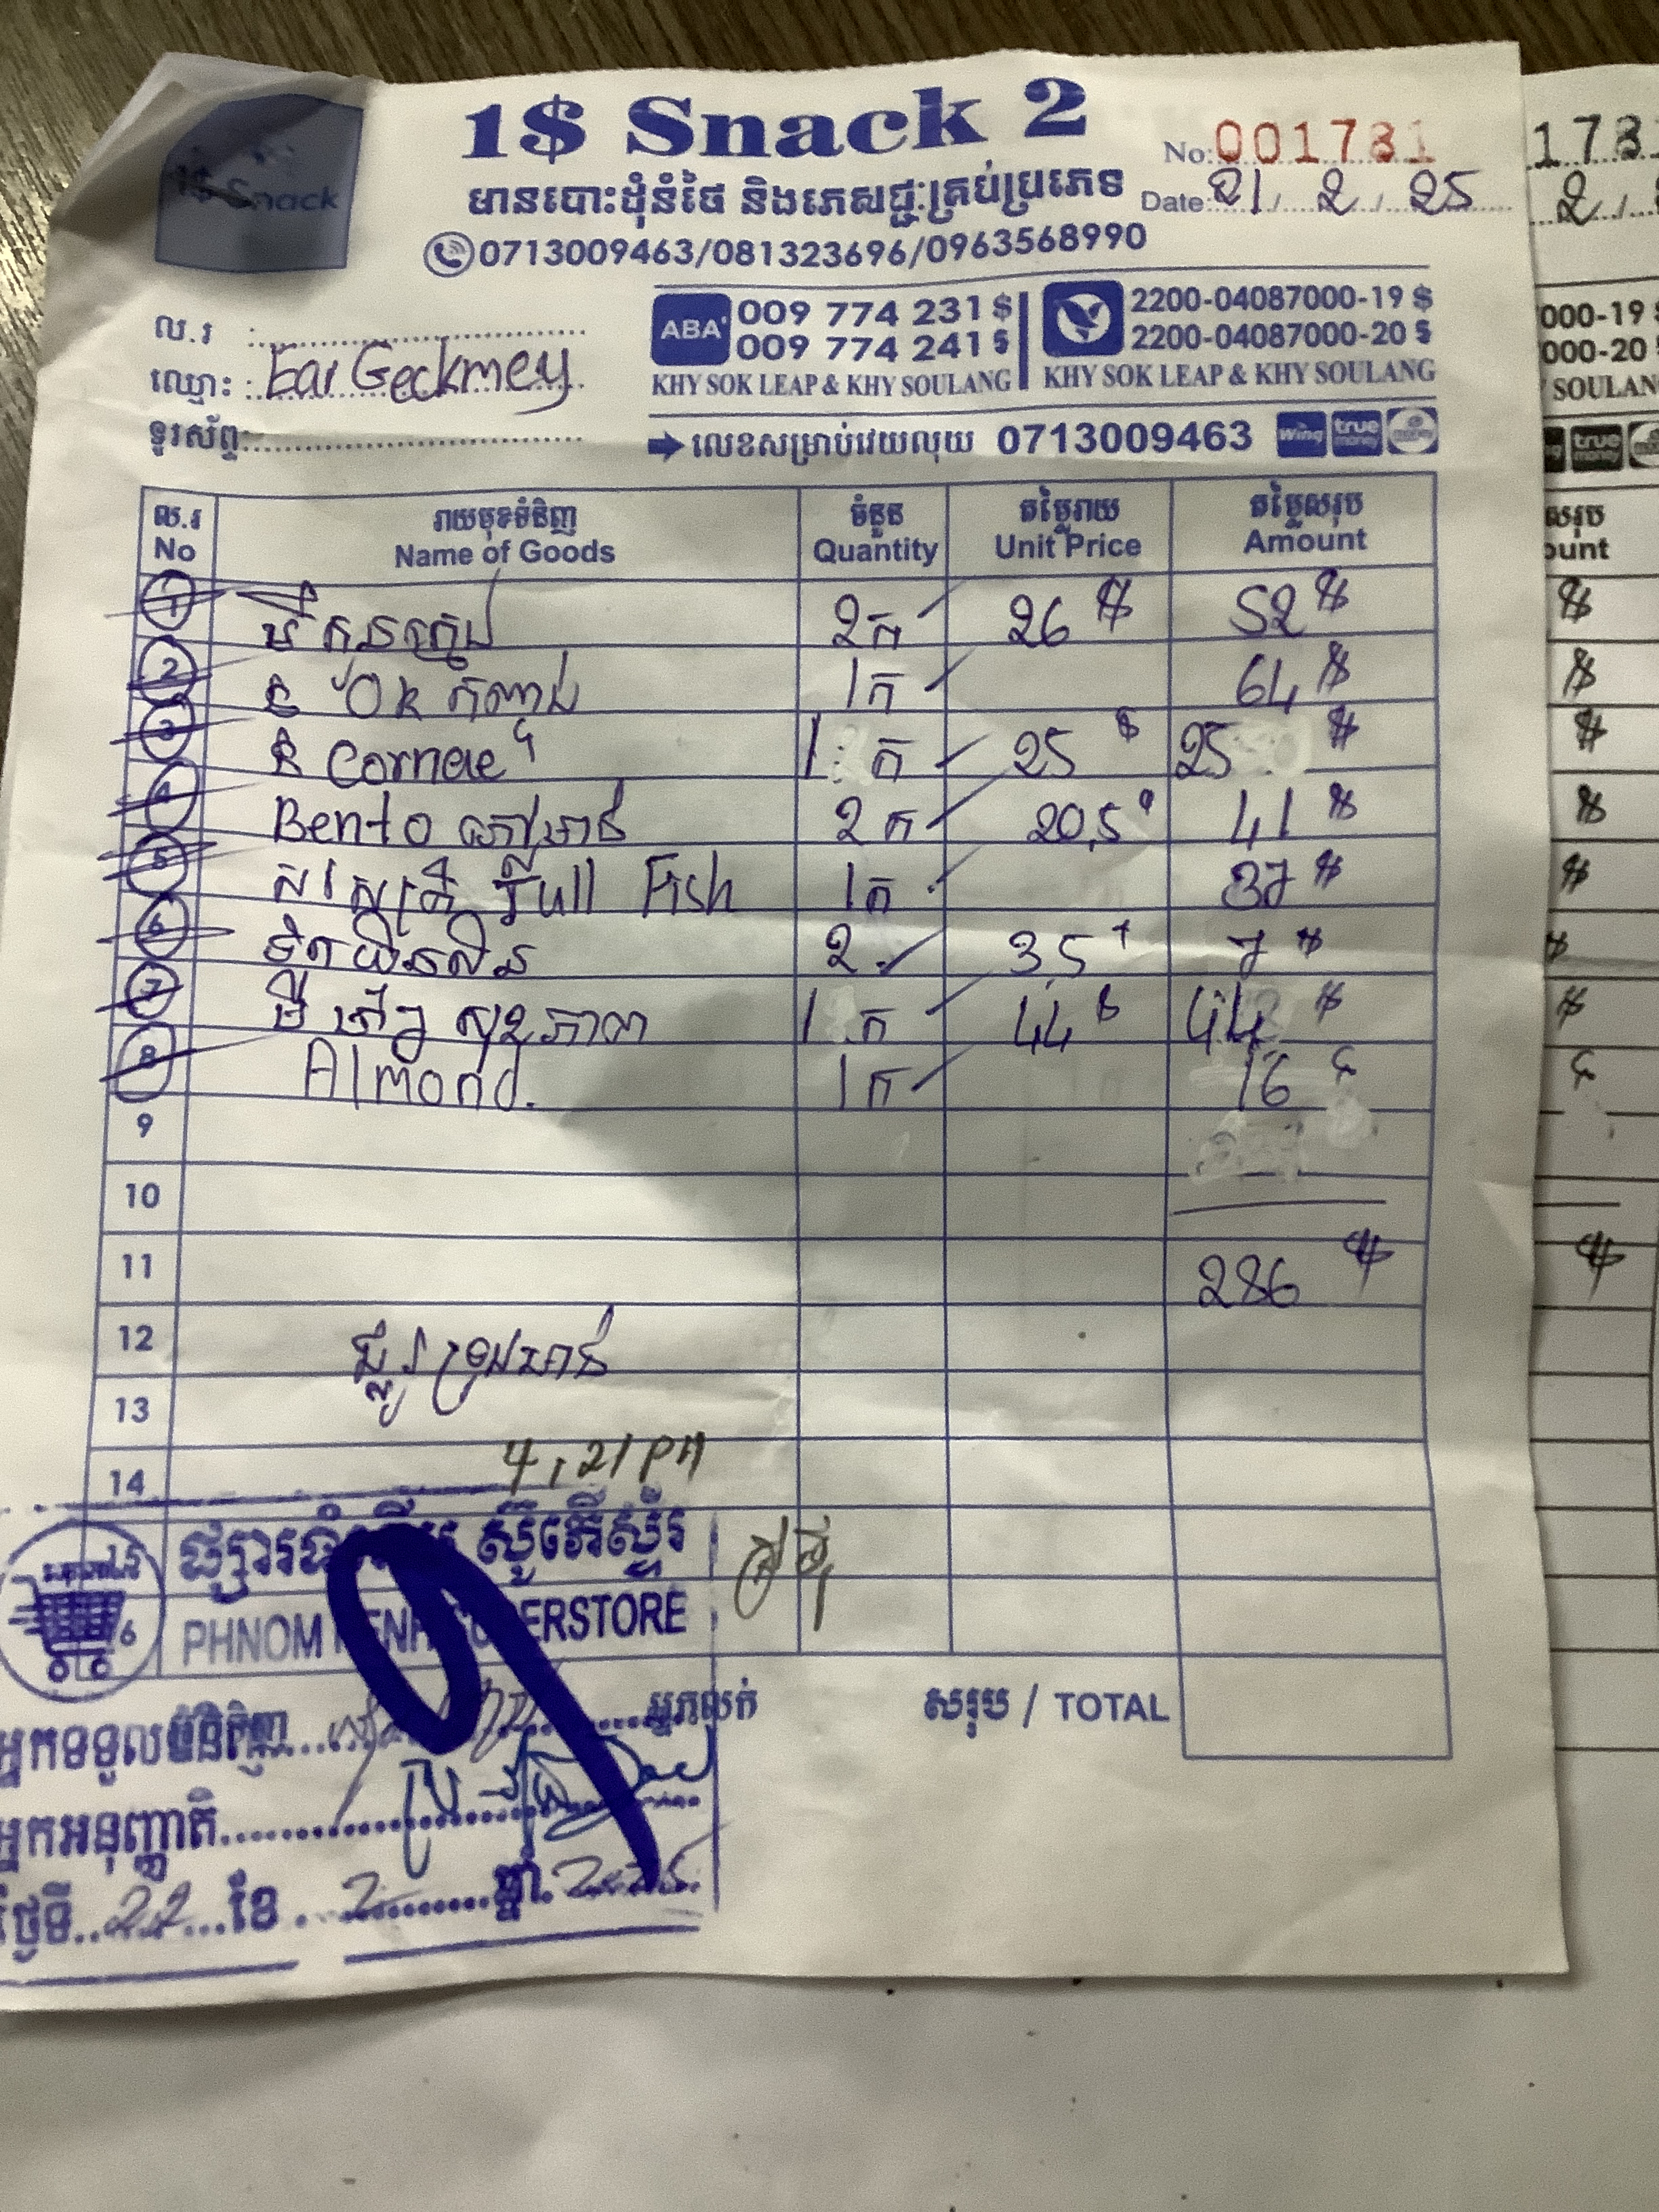 1$ Snack
1$ Snack 2
មានបោះដុំនំថៃ និងភេសជ្ជៈគ្រប់ប្រភេទ
0713009463/081323696/0963568990
No: 001731
Date: 21 / 2 / 25
ល.រ
ឈ្មោះ: Ear Geckmey
ទូរស័ព្ទ:
ABA' 009 774 231 $
009 774 241 $
KHY SOK LEAP & KHY SOULANG
2200-04087000-19 $
2200-04087000-20 $
KHY SOK LEAP & KHY SOULANG
លេខសម្រាប់វេយលុយ 0713009463 Wing true money
ល.រ រាយមុខទំនិញ ចំនួន តម្លៃរាយ តម្លៃសរុប
No Name of Goods Quantity Unit Price Amount
1 មី 2ក 26 $ 52 $
2 នំ Ok កញ្ចប់ 1ក 64 $
3 នំ Cornae 1 ក 25 $ 25 $
4 Bento 2ក 20,5 41 $
5 Full Fish 1ក 37 $
6 2 3,5 7 $
7 មី សុខភាព 1 ក 44 $ 44 $
8 Almond. 1ក 16 $
9
10
11 286 $
12
13
14 4,21 PM
15
16
ផ្សារទំនើប ស៊ូភើស្ទ័រ
PHNOM PENH SUPERSTORE
អ្នកទទួលទំនិញ
អ្នកលក់
សរុប / TOTAL
អ្នកអនុញ្ញាតិ
ថ្ងៃទី 22 ខែ 2 ឆ្នាំ 2025